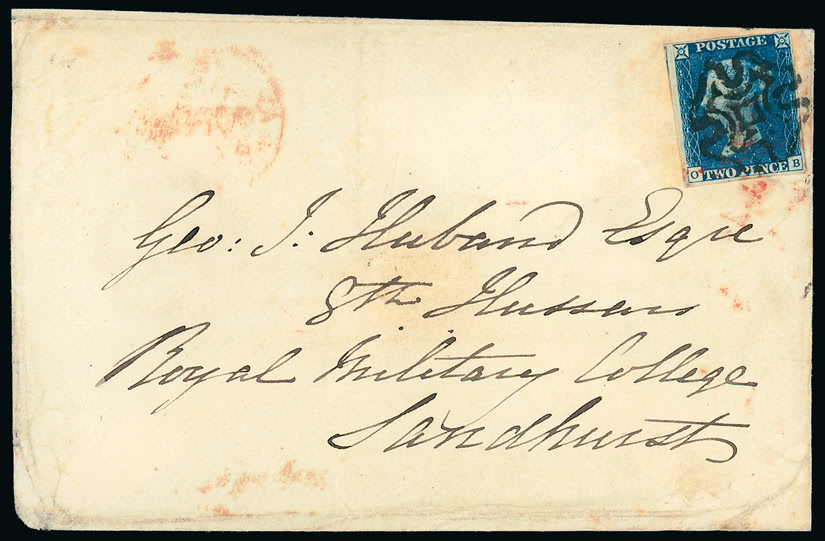 POSTAGE
O TWO PENCE B
Geo: J: Huband Esqre
8th Hussars
Royal Military College
Sandhurst